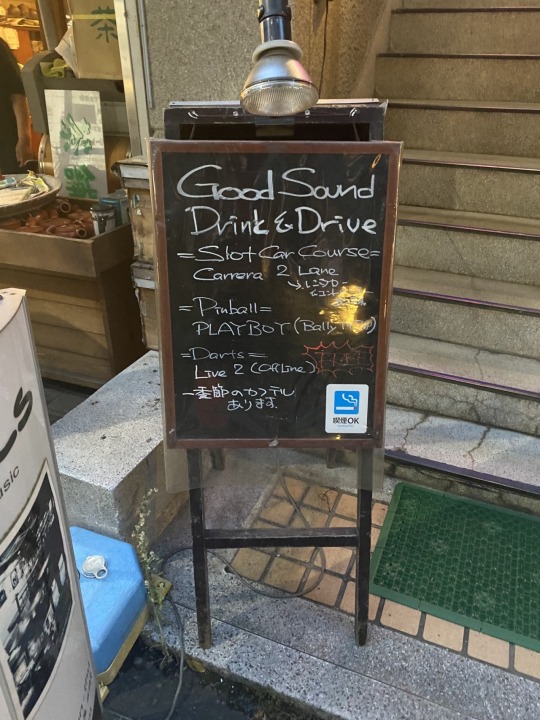 Good Sound
Drink & Drive
=Slot Car Course=
Carrera 2 Lane
=Pinball=
PLAYBOY (Bally
=Darts=
Live 2 (OffLine)
季節のカクテル
あります。
喫煙OK
茶
usic